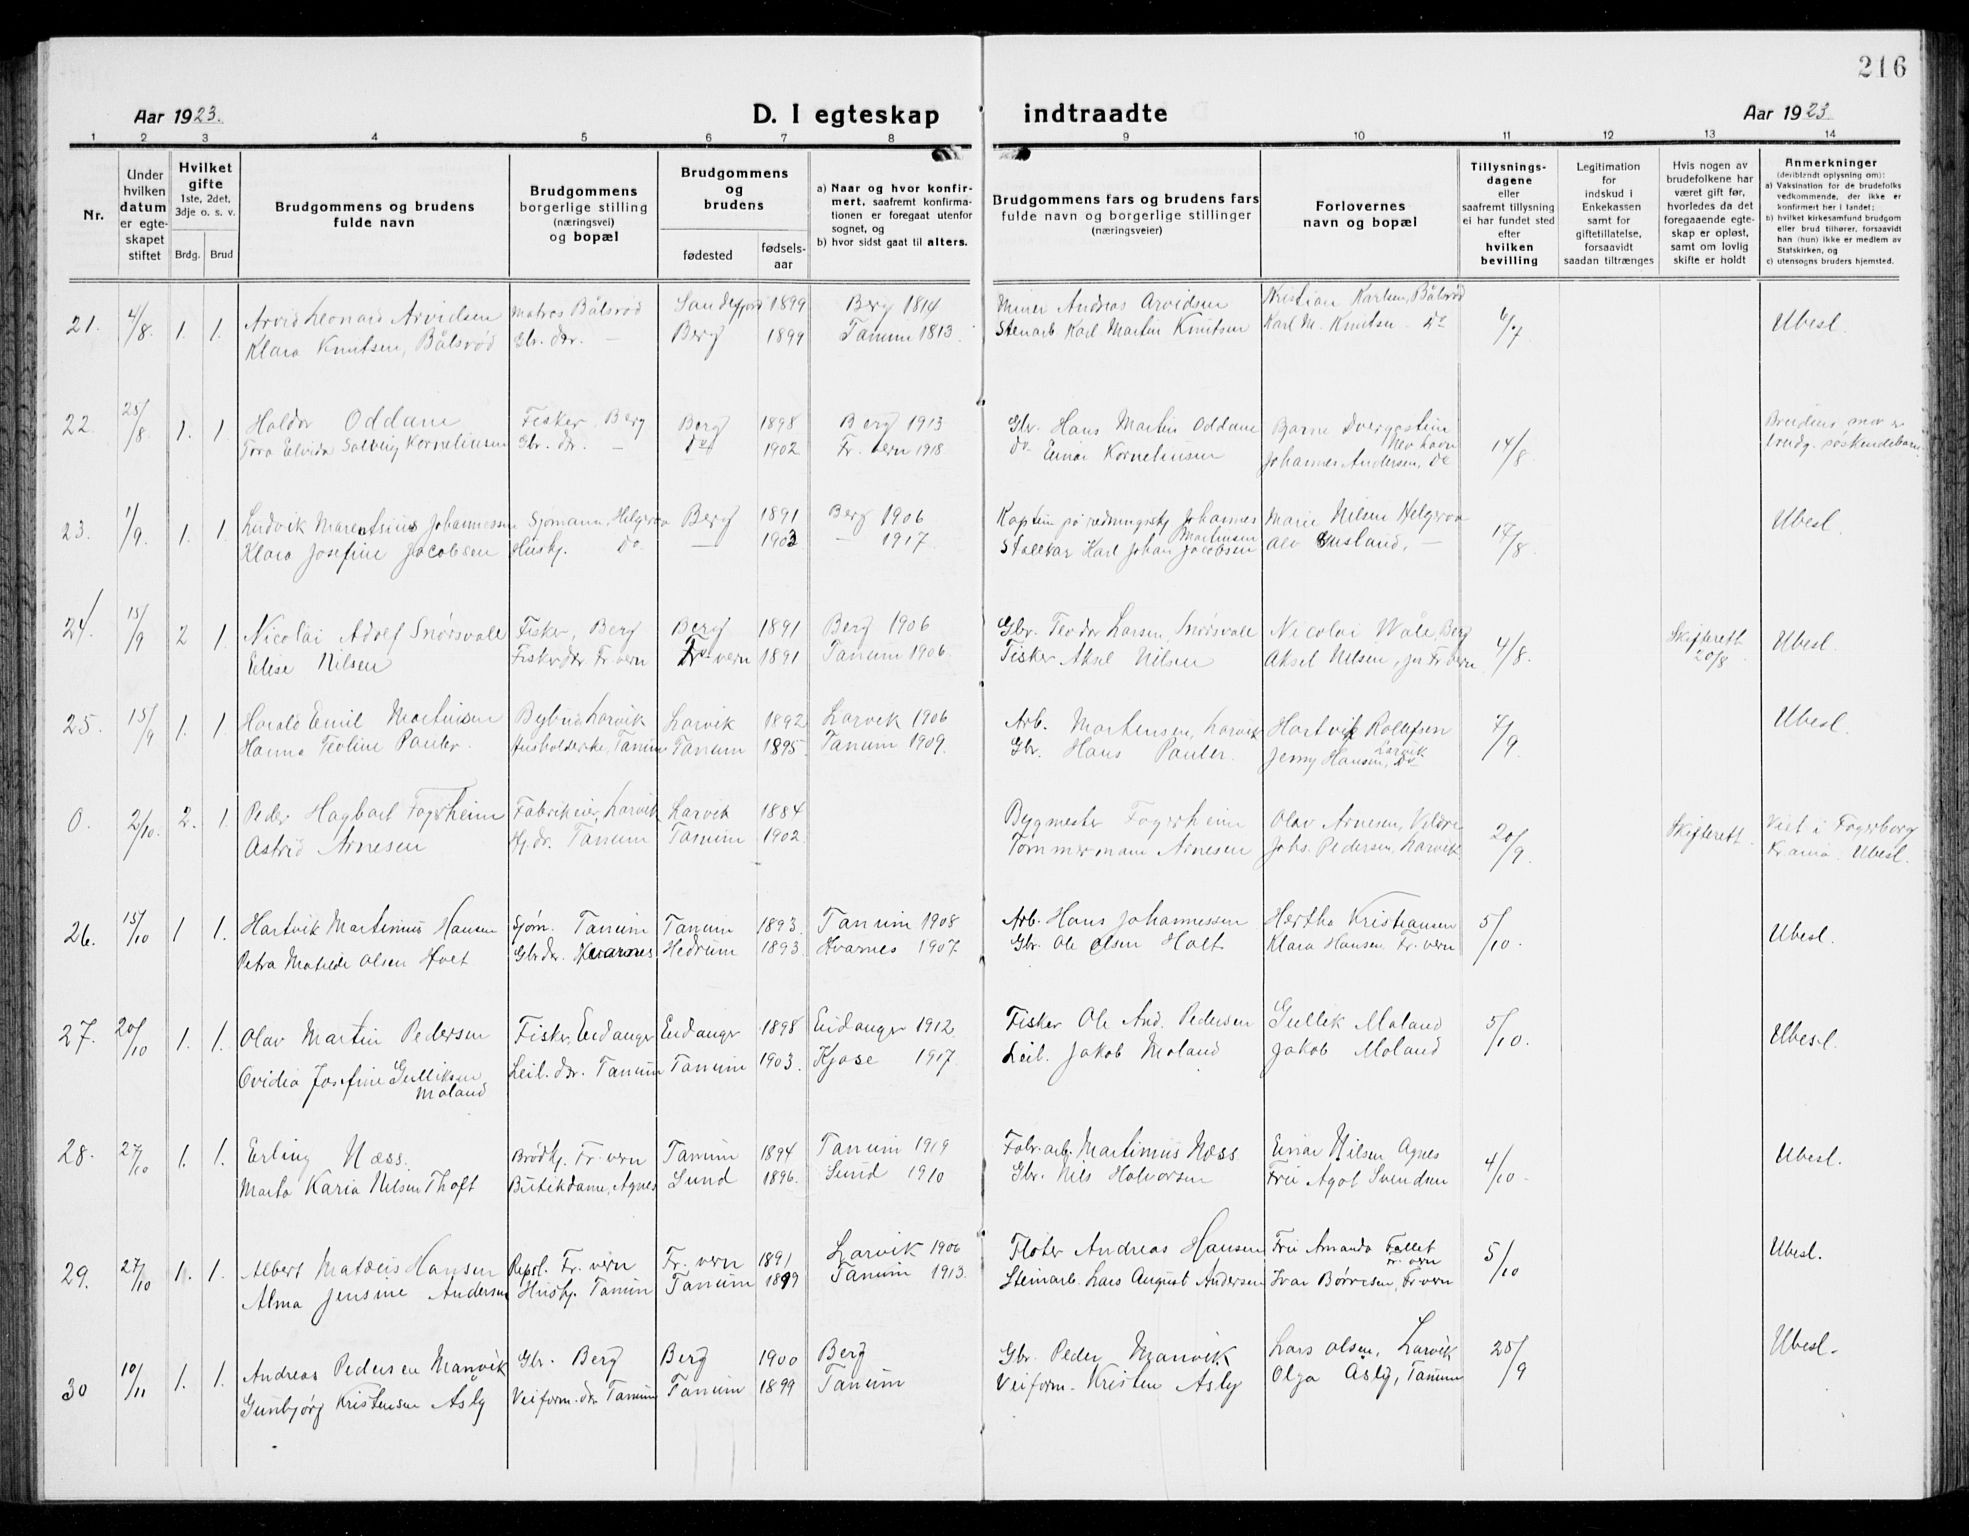 216
Aar 1923.
D. I egteskap
indtraadte
Aar 1923
1 2 3 4 5 6 7 8 9 10 11 12 13 14
Nr.
Under hvilken datum er egteskapet stiftet
Hvilket gifte 1ste, 2det, 3dje o. s. v.
Brdg. Brud
Brudgommens og brudens fulde navn
Brudgommens borgerlige stilling (næringsvei) og bopæl
Brudgommens og brudens
fødested
fødselsaar
a) Naar og hvor konfirmert, saafremt konfirmationen er foregaat utenfor sognet, og
b) hvor sidst gaat til alters.
Brudgommens fars og brudens fars fulde navn og borgerlige stillinger (næringsveier)
Forlovernes navn og bopæl
Tillysningsdagene eller saafremt tillysning ei har fundet sted efter hvilken bevilling
Legitimation for indskud i Enkekassen samt for giftetillatelse, forsaavidt saadan tiltrænges
Hvis nogen av brudefolkene har været gift før, hvorledes da det foregaaende egteskap er opløst, samt om lovlig skifte er holdt
Anmerkninger (deriblandt oplysning om):
a) Vaksination for de brudefolks vedkommende, der ikke er konfirmert her i landet;
b) hvilket kirkesamfund brudgom eller brud tilhører, forsaavidt han (hun) ikke er medlem av Statskirken, og
c) utensogns bruders hjemsted.
21. 4/8. 1. 1. Arvid Leonard Arvidsen Matros Bålsrød Sandefjord 1899 Berg 1814 Miner Andreas Arvidsen Kristian Karlsen, Bålsrød 6/7 Ubesl.
Klara Knutsen, Bålsrød Gbr. dtr. — Berg 1899 Tanum 1813. Stenarb. Karl Martin Knutsen Karl M. Knutsen - Do
22. 25/8. 1. 1. Haldor Oddane Fisker, Berg Berg 1898 Berg 1913 Gbr. Hans Martin Oddane Bjarne Dvergsten 14/8. Brudens mor er
Nevlhavn
Tora Elvida Solveig Korneliussen Gbr. dr. — Do 1902 Fr. vern 1918 Do Einar Korneliussen Johannes Andersen, Do brudg. søskendebarn
23. 1/9. 1. 1. Ludvik Marentsius Johannessen Sjømann, Helgeroa Berg 1891 Berg 1906 Kaptein på redningssk. Johannes Martinsen Marie Nilsen Helgeroa 17/8. Ubesl.
Klara Josefine Jacobsen Hush. Do — 1903 — 1917. Karl Johan Jacobsen —
24. 15/9 2 1. Nicolai Adolf Snørsvale Fisker, Berg Berg 1891 Berg 1906 Gbr. Teodor Larsen, Snørsvale Nicolai Wåle, Berg 4/8. Skifterett 20/8 Ubesl.
Elise Nilsen Fisker dtr. Fr. vern Fr. vern 1891 Tanum 1906. Fisker Aksel Nilsen Aksel Nilsen, jr. Fr. vern
25. 15/9 1. 1. Harald Emil Martinsen Bybud Larvik Larvik 1892 Larvik 1906 Arb. Martensen, Larvik Hartvik Rolafsen 7/9. Ubesl.
Larvik
Hanna Teoline Pauler. Husholderske, Tanum Tanum 1895. Tanum 1909. Gbr. Hans Pauler. Jenny Hansen, Do
0. 2/10. 2. 1. Peder Hagbart Fagerheim Fabrikeier, Larvik Larvik 1884 Bygmester Fagerheim Olav Arnesen, Veldre 20/9. Skifterett. Viet i Fagerborg
Astrid Arnesen Hj. dr. Tanum Tanum 1902. Tømmermann Arnesen Johs. Pedersen, Larvik Kr.ania. Ubesl.
26. 15/10 1 1. Hartvik Martinius Hansen Sjøm. Tanum Tanum 1893. Tanum 1908 Arb. Hans Johannessen Hertha Kristiansen 5/10. Ubesl.
Petra Matilde Olsen Holt Gbr. dr. Kvarnes Hedrum 1893. Kvarnes 1907. Gbr. Ole Olsen Holt Klara Hansen Fr. vern
27. 20/10 1. 1. Olav Martin Pedersen Fisker, Eidanger Eidanger 1898 Eidanger 1912. Fisker Ole And. Pedersen Gullik Moland 5/10. Ubesl.
Ovidia Josefine Gulliksen Moland Leil. dtr. Tanum Tanum 1903. Kjose 1917. Leil. Jakob Moland Jakob Moland
28. 27/10 1. 1. Erling Næss. Brødhj. Fr. vern Tanum 1894 Tanum 1919 Fabr. arb. Martinius Næss Einar Nilsen Agnes 4/10. Ubesl.
Marta Karia Nilsen Thoft Butikdame, Agnes Sund 1896. Sund 1910 Gbr. Nils Halvorsen Fru Agot Svendsen
29. 27/10 1. 1. Albert Mateus Hansen Repsl. Fr. vern Fr. vern 1891 Larvik 1906 Fløter Andreas Hansen Fru Amanda Fallet 5/10 Ubesl.
Fr. vern
Alma Jensine Andersen Hushj. Tanum Tanum 1899 Tanum 1913. Steinarb. Lars August Andersen Ivar Børresen, Fr. vern
30 10/11 1. 1. Andreas Pedersen Manvik Gbr. Berg Berg 1900 Berg Gbr. Peder Manvik Lars Olsen, Larvik 25/9 Ubesl.
Gunbjørg Kristensen Asly Veiform. dtr. Tanum Tanum 1899 Tanum Veiform. Kristen Asly Olga Asly, Tanum